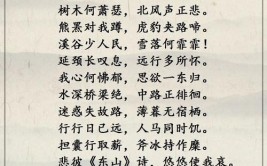 树木何萧瑟，北风声正悲。
熊罴对我蹲，虎豹夹路啼。
溪谷少人民，雪落何霏霏！
延颈长叹息，远行多所怀。
我心何怫郁，思欲一东归。
水深桥梁绝，中路正徘徊。
迷惑失故路，薄暮无宿栖。
行行日已远，人马同时饥。
担囊行取薪，斧冰持作糜。
悲彼《东山》诗，悠悠使我哀。